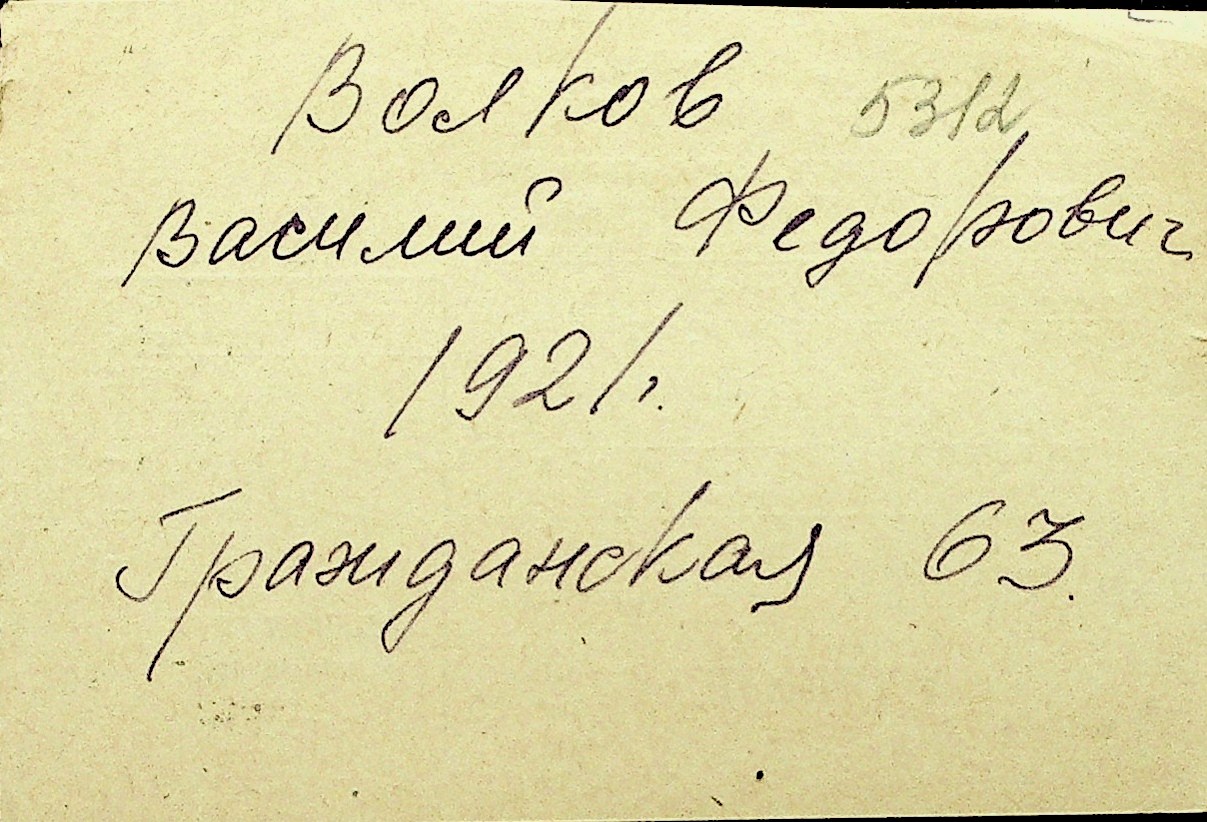 Волков 5312
Василий Федорович
1921г.
Гражданская 63.